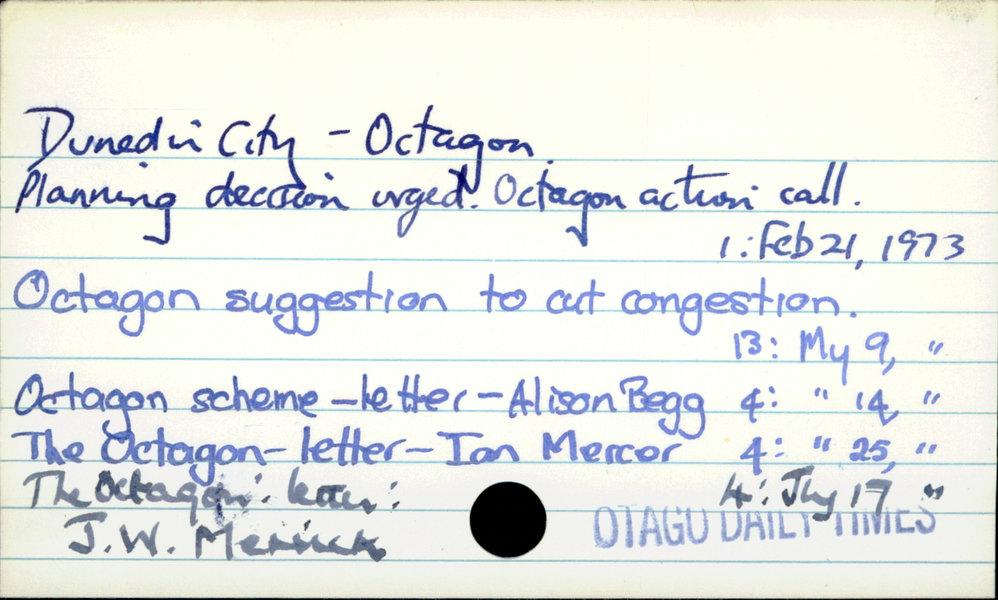 Dunedin City - Octagon.
Planning decision urged. Octagon action call.
1: Feb 21, 1973
Octagon suggestion to cut congestion.
13: My 9, "
Octagon scheme - letter - Alison Begg 4: " 14, "
The Octagon - letter - Ian Mercer 4: " 25, "
The Octagon: letter: 4: Jly 17 "
J.W. Merrick
OTAGO DAILY TIMES